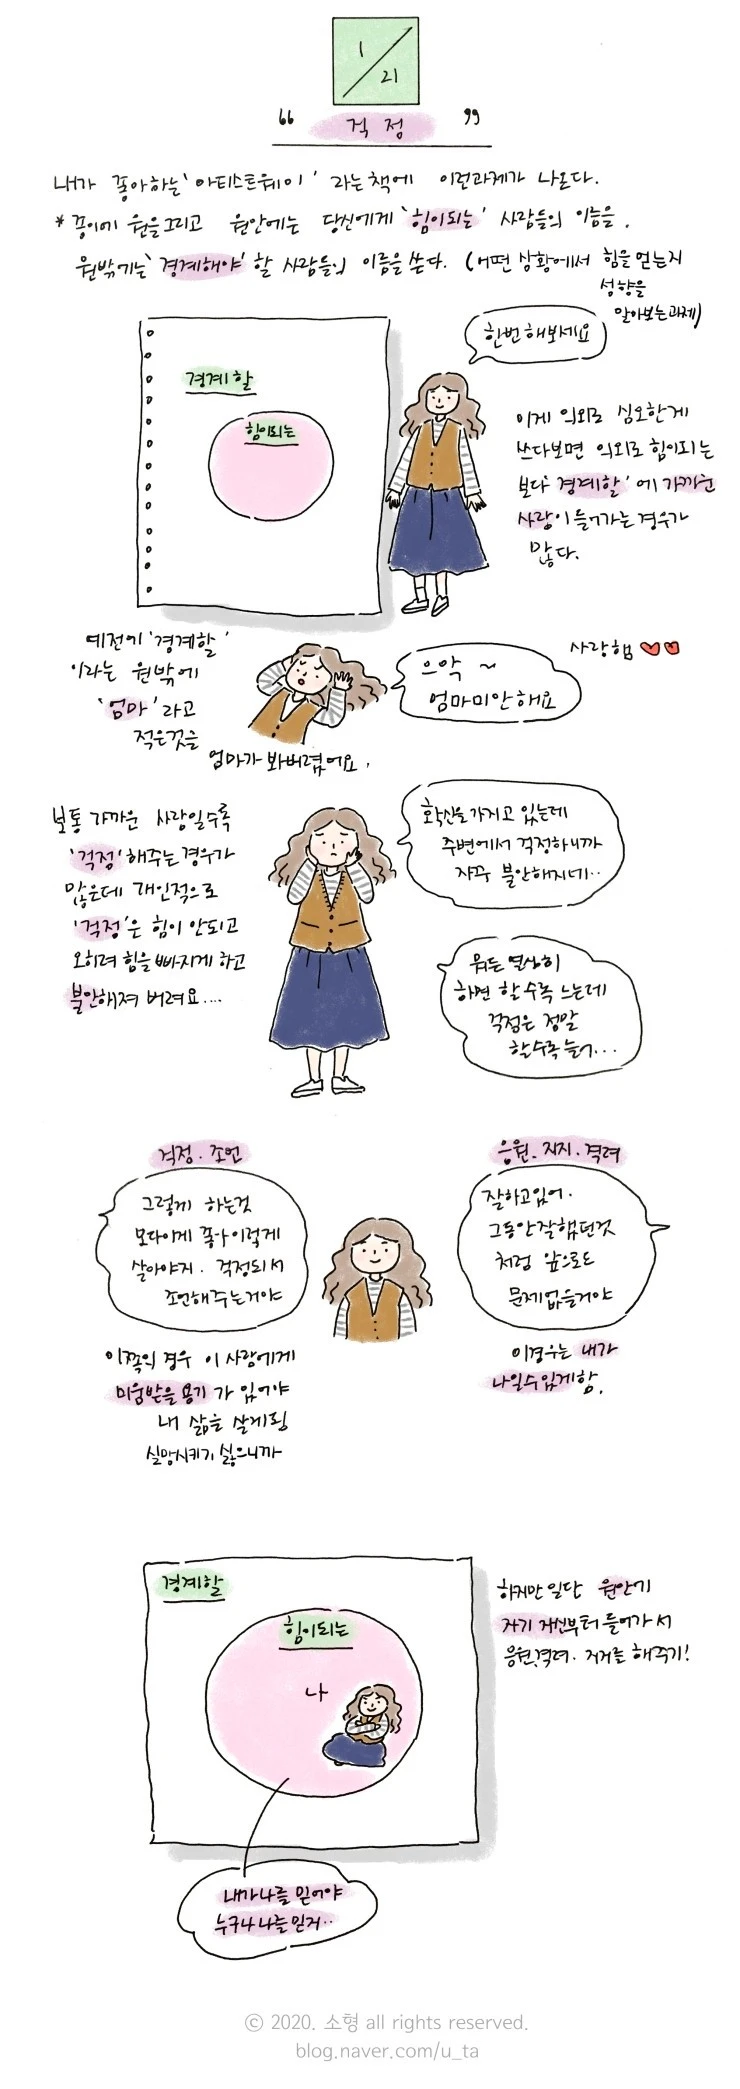 1/21
“ 걱정 ”
내가 좋아하는 '아티스트웨이' 라는책에 이런과제가 나온다.
* 종이에 원을그리고 원안에는 당신에게 '힘이되는' 사람들의 이름을,
원밖에는 '경계해야' 할 사람들의 이름을 쓴다. (어떤 상황에서 힘을얻는지
성향을
알아보는과제)
한번해보세요
경계할
힘이되는
이게 의외로 심오한게
쓰다보면 의외로 힘이되는
보다 경계할'에 가까운
사람이 들어가는 경우가
많다.
예전에 '경계할'
이라는 원밖에
'엄마'라고
적은것을
엄마가 봐버렸어요.
으악 ~
엄마미안해요
사랑햄
보통 가까운 사람일수록
'걱정'해주는경우가
많은데 개인적으로
'걱정'은 힘이 안되고
오히려 힘을 빠지게 하고
불안해져 버려요....
확신을가지고 있는데
주변에서 걱정하니까
자꾸 불안해지네..
뭐든 열심히
하면 할수록 느는데
걱정은 정말
할수록늘어...
걱정. 조언
그렇게 하는것
보다이게 좋아이렇게
살아야지. 걱정되서
조언해주는거야
이쪽의 경우 이 사람에게
미움받을 용기가 있어야
내 삶을 살게됨
실망시키기 싫으니까
응원. 지지. 격려
잘하고있어.
그동안잘했던것
처럼 앞으로도
문제없을거야
이경우는 내가
나일수있게함.
경계할
힘이되는
나
하지만 일단 원안에
자기 자신부터 들어가서
응원.격려. 지지를 해주기!
내가나를 믿어야
누구나 나를믿지..
© 2020. 소형 all rights reserved.
blog.naver.com/u_ta